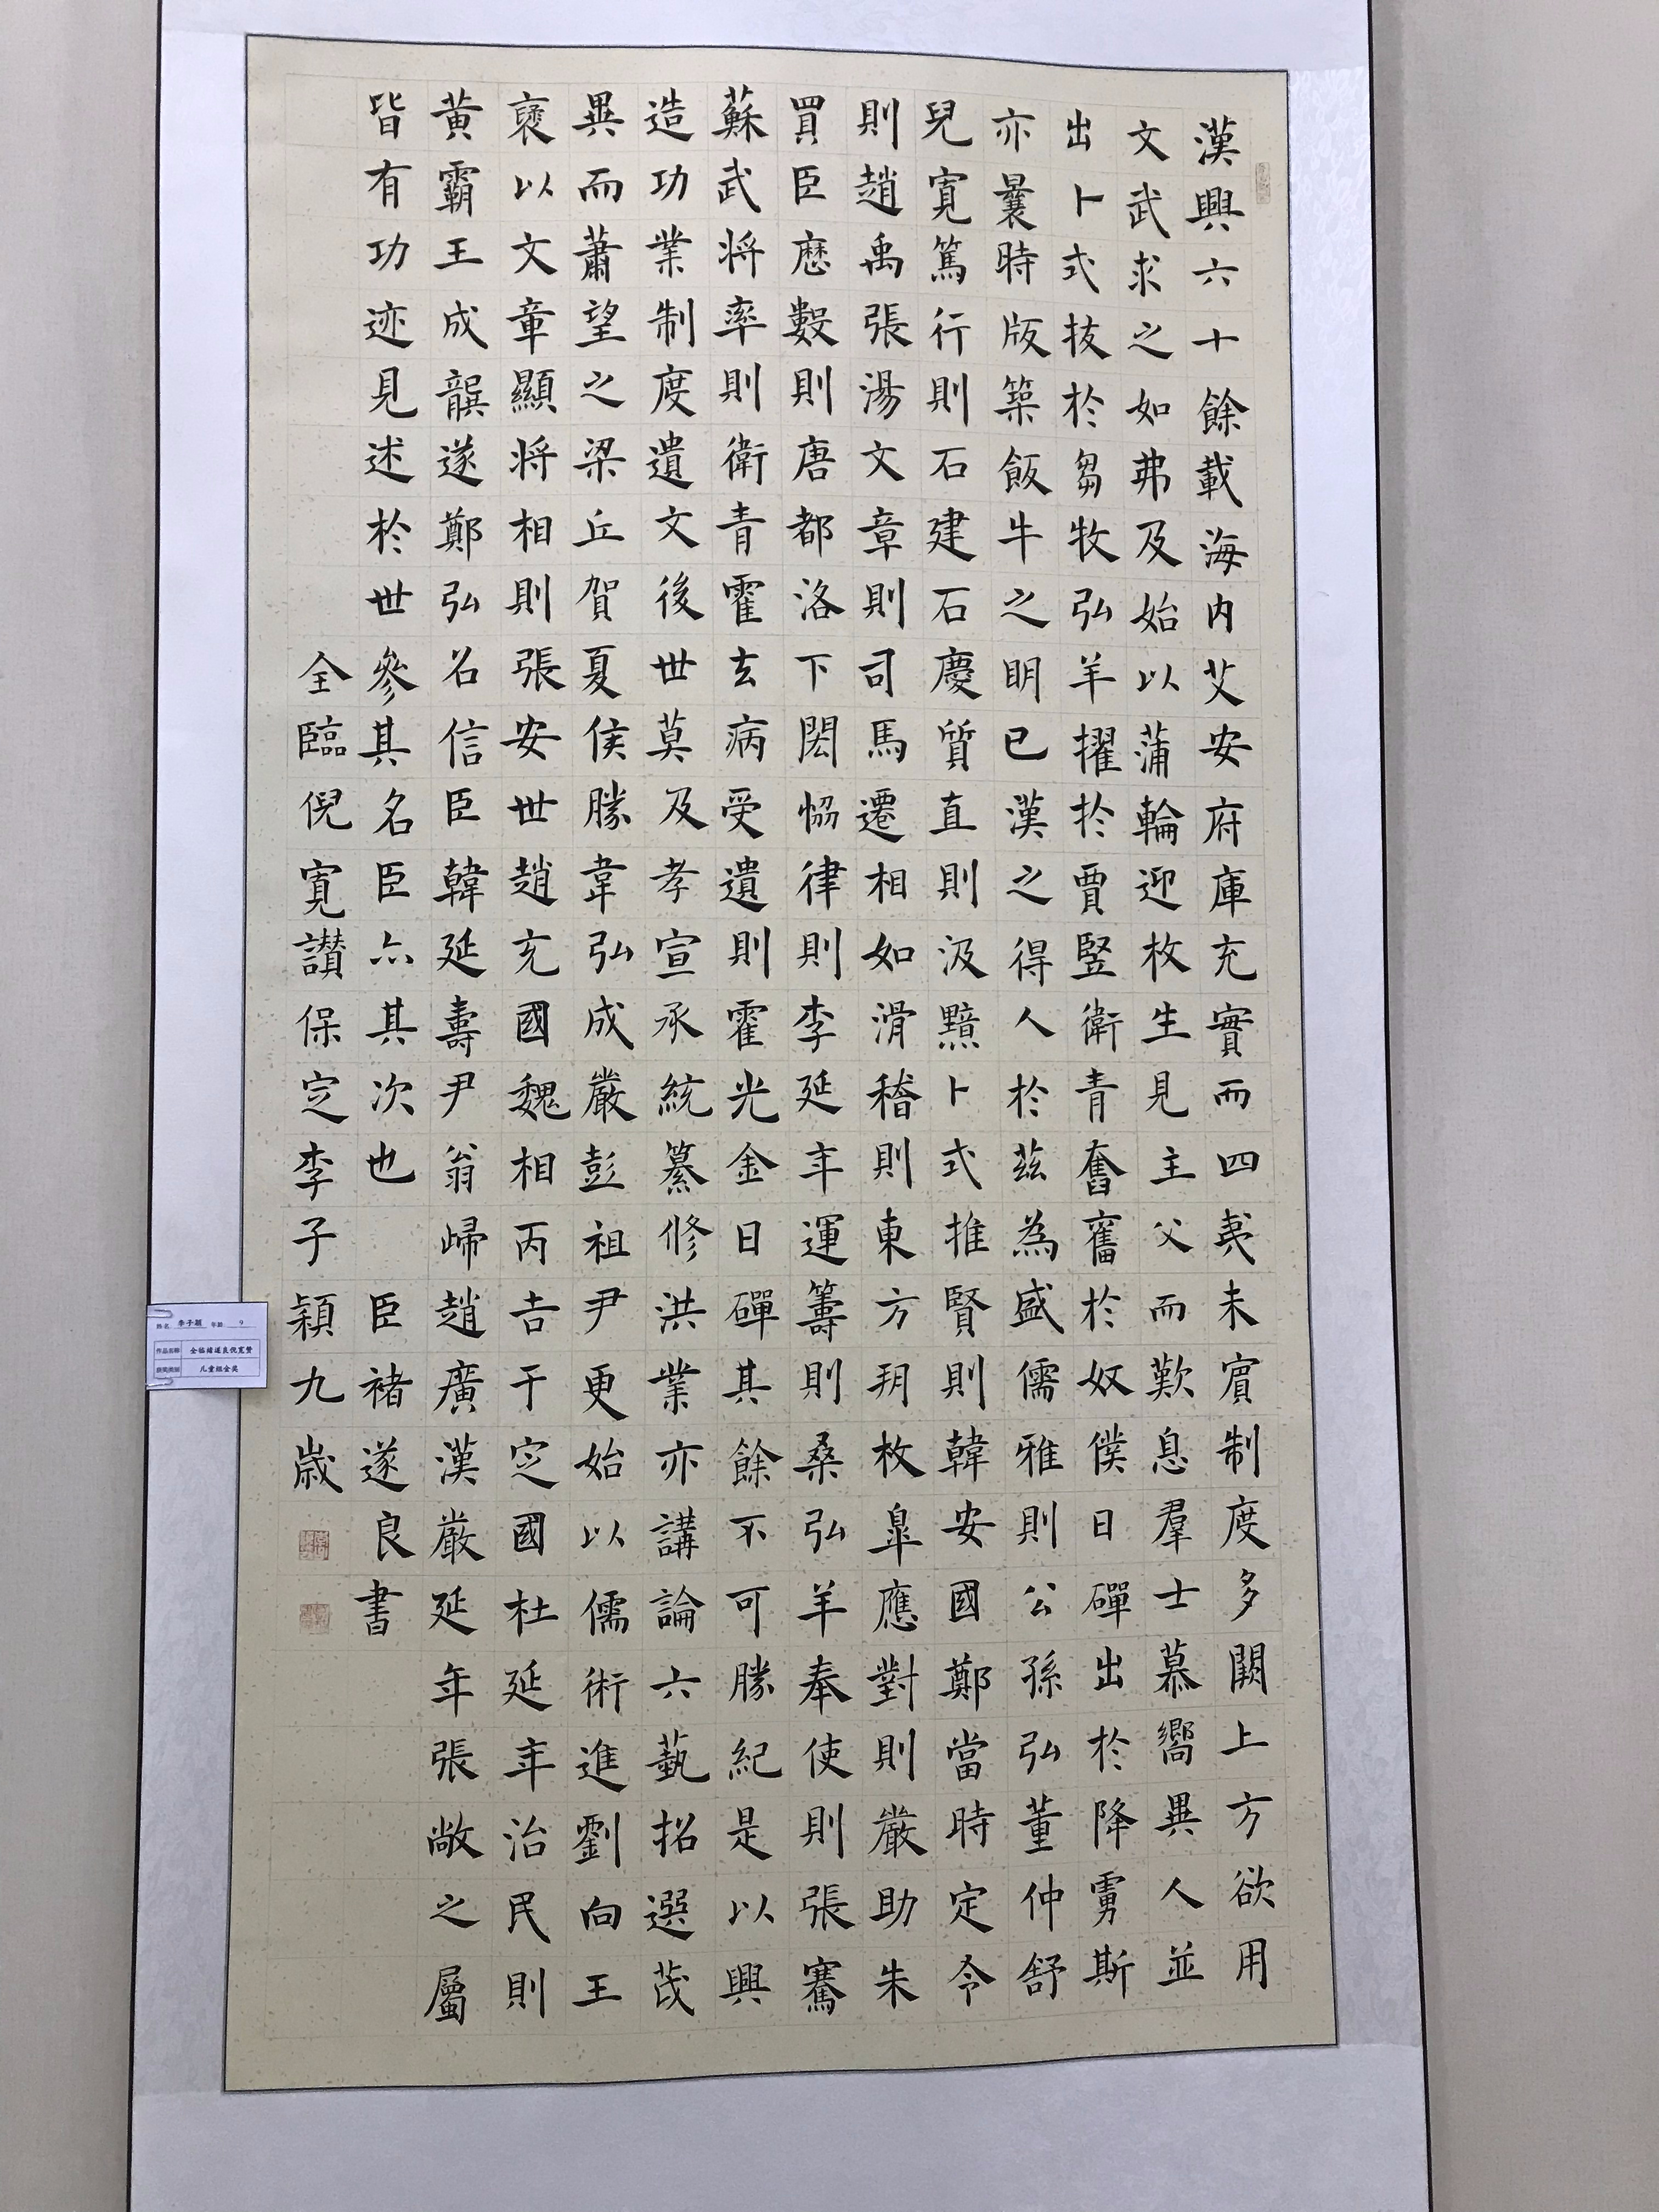 漢興六十餘載海内艾安府庫充實而四夷未賓制度多闕上方欲用
文武求之如弗及始以蒲輪迎枚生見主父而歎息羣士慕嚮異人並
出卜式拔於芻牧弘羊擢於賈豎衛青奮舊於奴僕日磾出於降虜斯
亦曩時版築飯牛之明已漢之得人於茲為盛儒雅則公孫弘董仲舒
兒寬篤行則石建石慶質直則汲黯卜式推賢則韓安國鄭當時定令
則趙禹張湯文章則司馬遷相如滑稽則東方朔枚皐應對則嚴助朱
買臣歷數則唐都洛下閎恊律則李延年運籌則桑弘羊奉使則張騫
蘇武将率則衛青霍玄病受遺則霍光金日磾其餘不可勝紀是以興
造功業制度遺文後世莫及孝宣承統纂修洪業亦講論六藝招選茂
異而蕭望之梁丘賀夏侯勝韋弘成嚴彭祖尹更始以儒術進劉向王
襃以文章顯将相則張安世趙充國魏相丙吉于定國杜延年治民則
黃霸王成龔遂鄭弘召信臣韓延壽尹翁歸趙廣漢嚴延年張敞之屬
皆有功迹見述於世參其名臣亦其次也 臣褚遂良書
全臨倪寬讃保定李子穎九歲
姓名 李子颖 年龄 9
作品名称 全临褚遂良倪宽赞
获奖类别 儿童组金奖